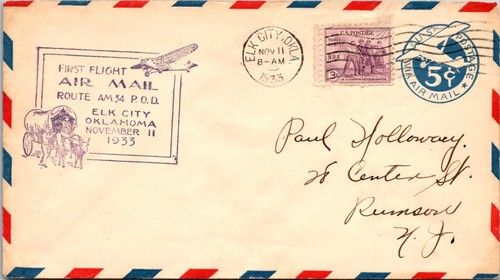 FIRST FLIGHT
AIR MAIL
ROUTE AM34 P.O.D.
ELK CITY
OKLAHOMA
NOVEMBER 11
1933
ELK CITY, OKLA.
NOV 11
8-AM
1933
U.S. POSTAGE
3
U.S. POSTAGE
5¢
VIA AIR MAIL
Paul Holloway.
28 Center St.
Rumson
N. J.